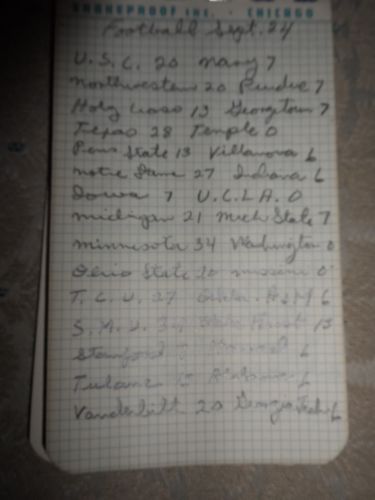 SHAKEPROOF INC. • CHICAGO
Football Sept. 24
U.S.C. 20 Navy 7
Northwestern 20 Purdue 7
Holy Cross 13 Georgetown 7
Texas 28 Temple 0
Penn State 13 Villanova 6
Notre Dame 27 Indiana 6
Iowa 7 U.C.L.A. 0
Michigan 21 Mich State 7
Minnesota 34 Washington 0
Ohio State 20 Missouri 0
T.C.U. 27 A&M 6
S.M.U. 34 13
Stanford 6
Tulane 13 Alabama 6
Vanderbilt 20 Georgia Tech 6